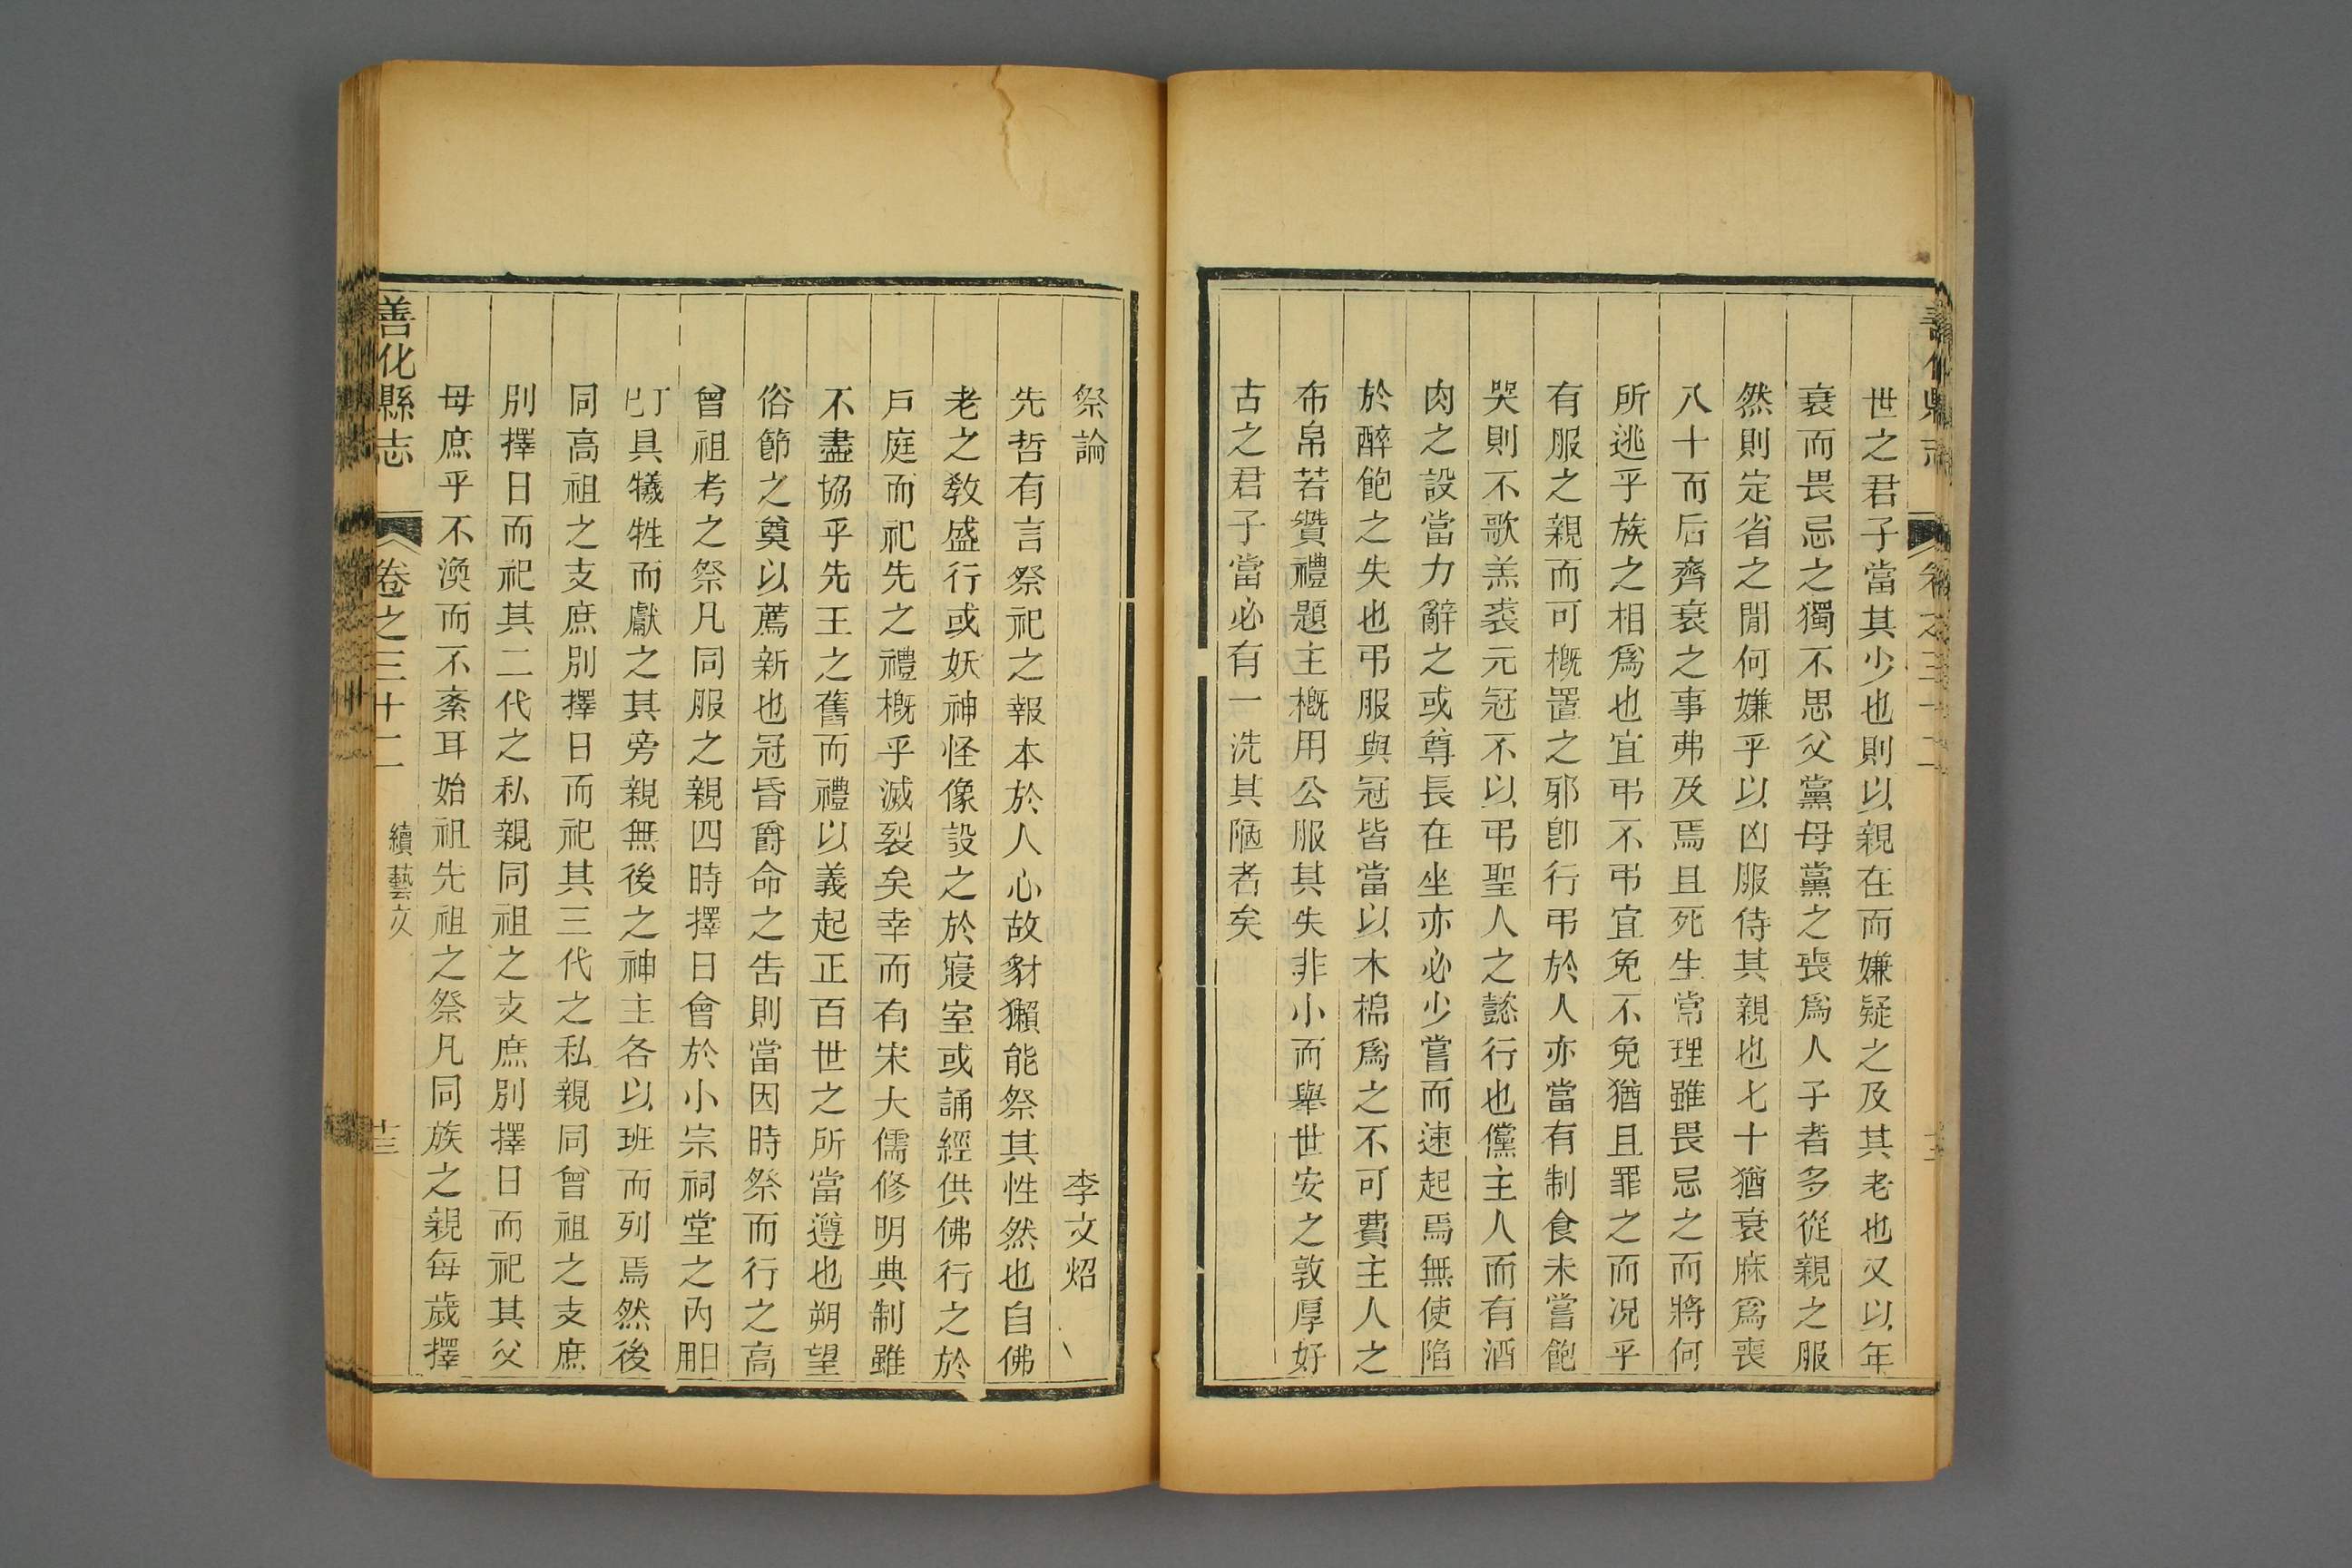 世之君子當其少也則以親在而嫌疑之及其老也又以年
衰而畏忌之獨不思父黨母黨之喪爲人子者多從親之服
然則定省之閒何嫌乎以凶服侍其親也七十猶衰麻爲喪
八十而后齊衰之事弗及焉且死生常理雖畏忌之而將何
所逃乎族之相爲也宜弔不弔宜免不免猶且罪之而況乎
有服之親而可槪置之邪卽行弔於人亦當有制食未嘗飽
哭則不歌羔裘元冠不以弔聖人之懿行也儻主人而有酒
肉之設當力辭之或尊長在坐亦必少嘗而速起焉無使陷
於醉飽之失也弔服與冠皆當以木棉爲之不可費主人之
布帛若贊禮題主槪用公服其失非小而舉世安之敦厚好
古之君子當必有一洗其陋者矣
祭論 李文炤
先哲有言祭祀之報本於人心故豺獺能祭其性然也自佛
老之敎盛行或妖神怪像設之於寢室或誦經供佛行之於
戶庭而祀先之禮槪乎滅裂矣幸而有宋大儒修明典制雖
不盡協乎先王之舊而禮以義起正百世之所當遵也朔望
俗節之奠以薦新也冠昏爵命之告則當因時祭而行之高
曾祖考之祭凡同服之親四時擇日會於小宗祠堂之內用
具犧牲而獻之其旁親無後之神主各以班而列焉然後
同高祖之支庶別擇日而祀其三代之私親同曾祖之支庶
別擇日而祀其二代之私親同祖之支庶別擇日而祀其父
母庶乎不渙而不紊耳始祖先祖之祭凡同族之親每歲擇
善化縣志 卷之三十二 續藝文 十三